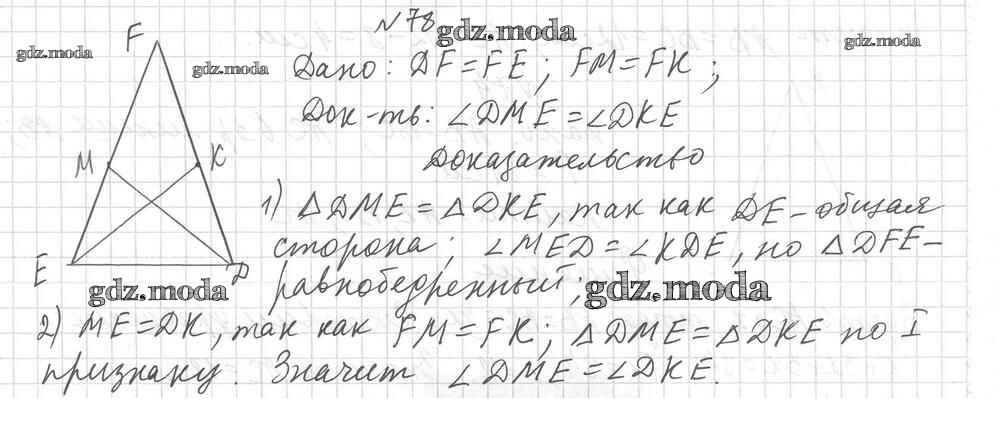 №78
gdz.moda
gdz.moda
F
gdz.moda
gdz.moda
Дано: DF=FE; FM=FK;
Док-ть: ∠DME=∠DKE
Доказательство
M
K
1) △DME=△DKE, так как DE-общая
сторона; ∠MED=∠KDE, по △DFE-
E
D
равнобедренный;
gdz.moda
gdz.moda
2) ME=DK, так как FM=FK; △DME=△DKE по I
признаку. Значит ∠DME=∠DKE.